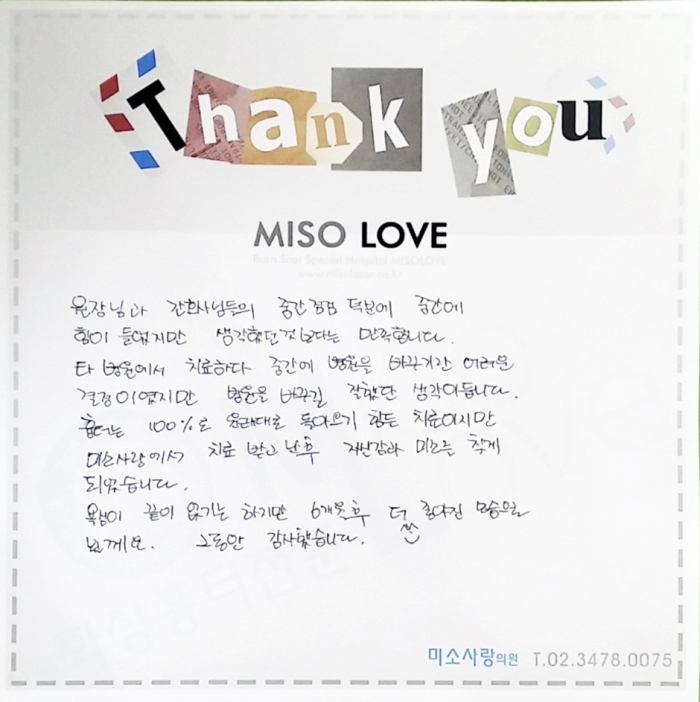 Thank you
MISO LOVE
Burn Scar Special Hospital MISOLOVE
원장님과 간호사님들의 중간점검 덕분에 중간에
힘이 들었지만 생각했던것보다는 만족합니다.
타 병원에서 치료하다 중간에 병원을 바꾸기간 어려운
결정이였지만 병원을 바꾸길 잘했단 생각이듭니다.
흉터는 100%로 원래대로 돌아오기 힘든 치료이지만
미소사랑에서 치료 받고 난후 자신감과 미소를 찾게
되었습니다.
욕심이 끝이 없기는 하지만 6개월후 더 좋아진 모습으로
뵐께요. 그동안 감사했습니다.
화상흉터전문
미소사랑의원 T.02.3478.0075